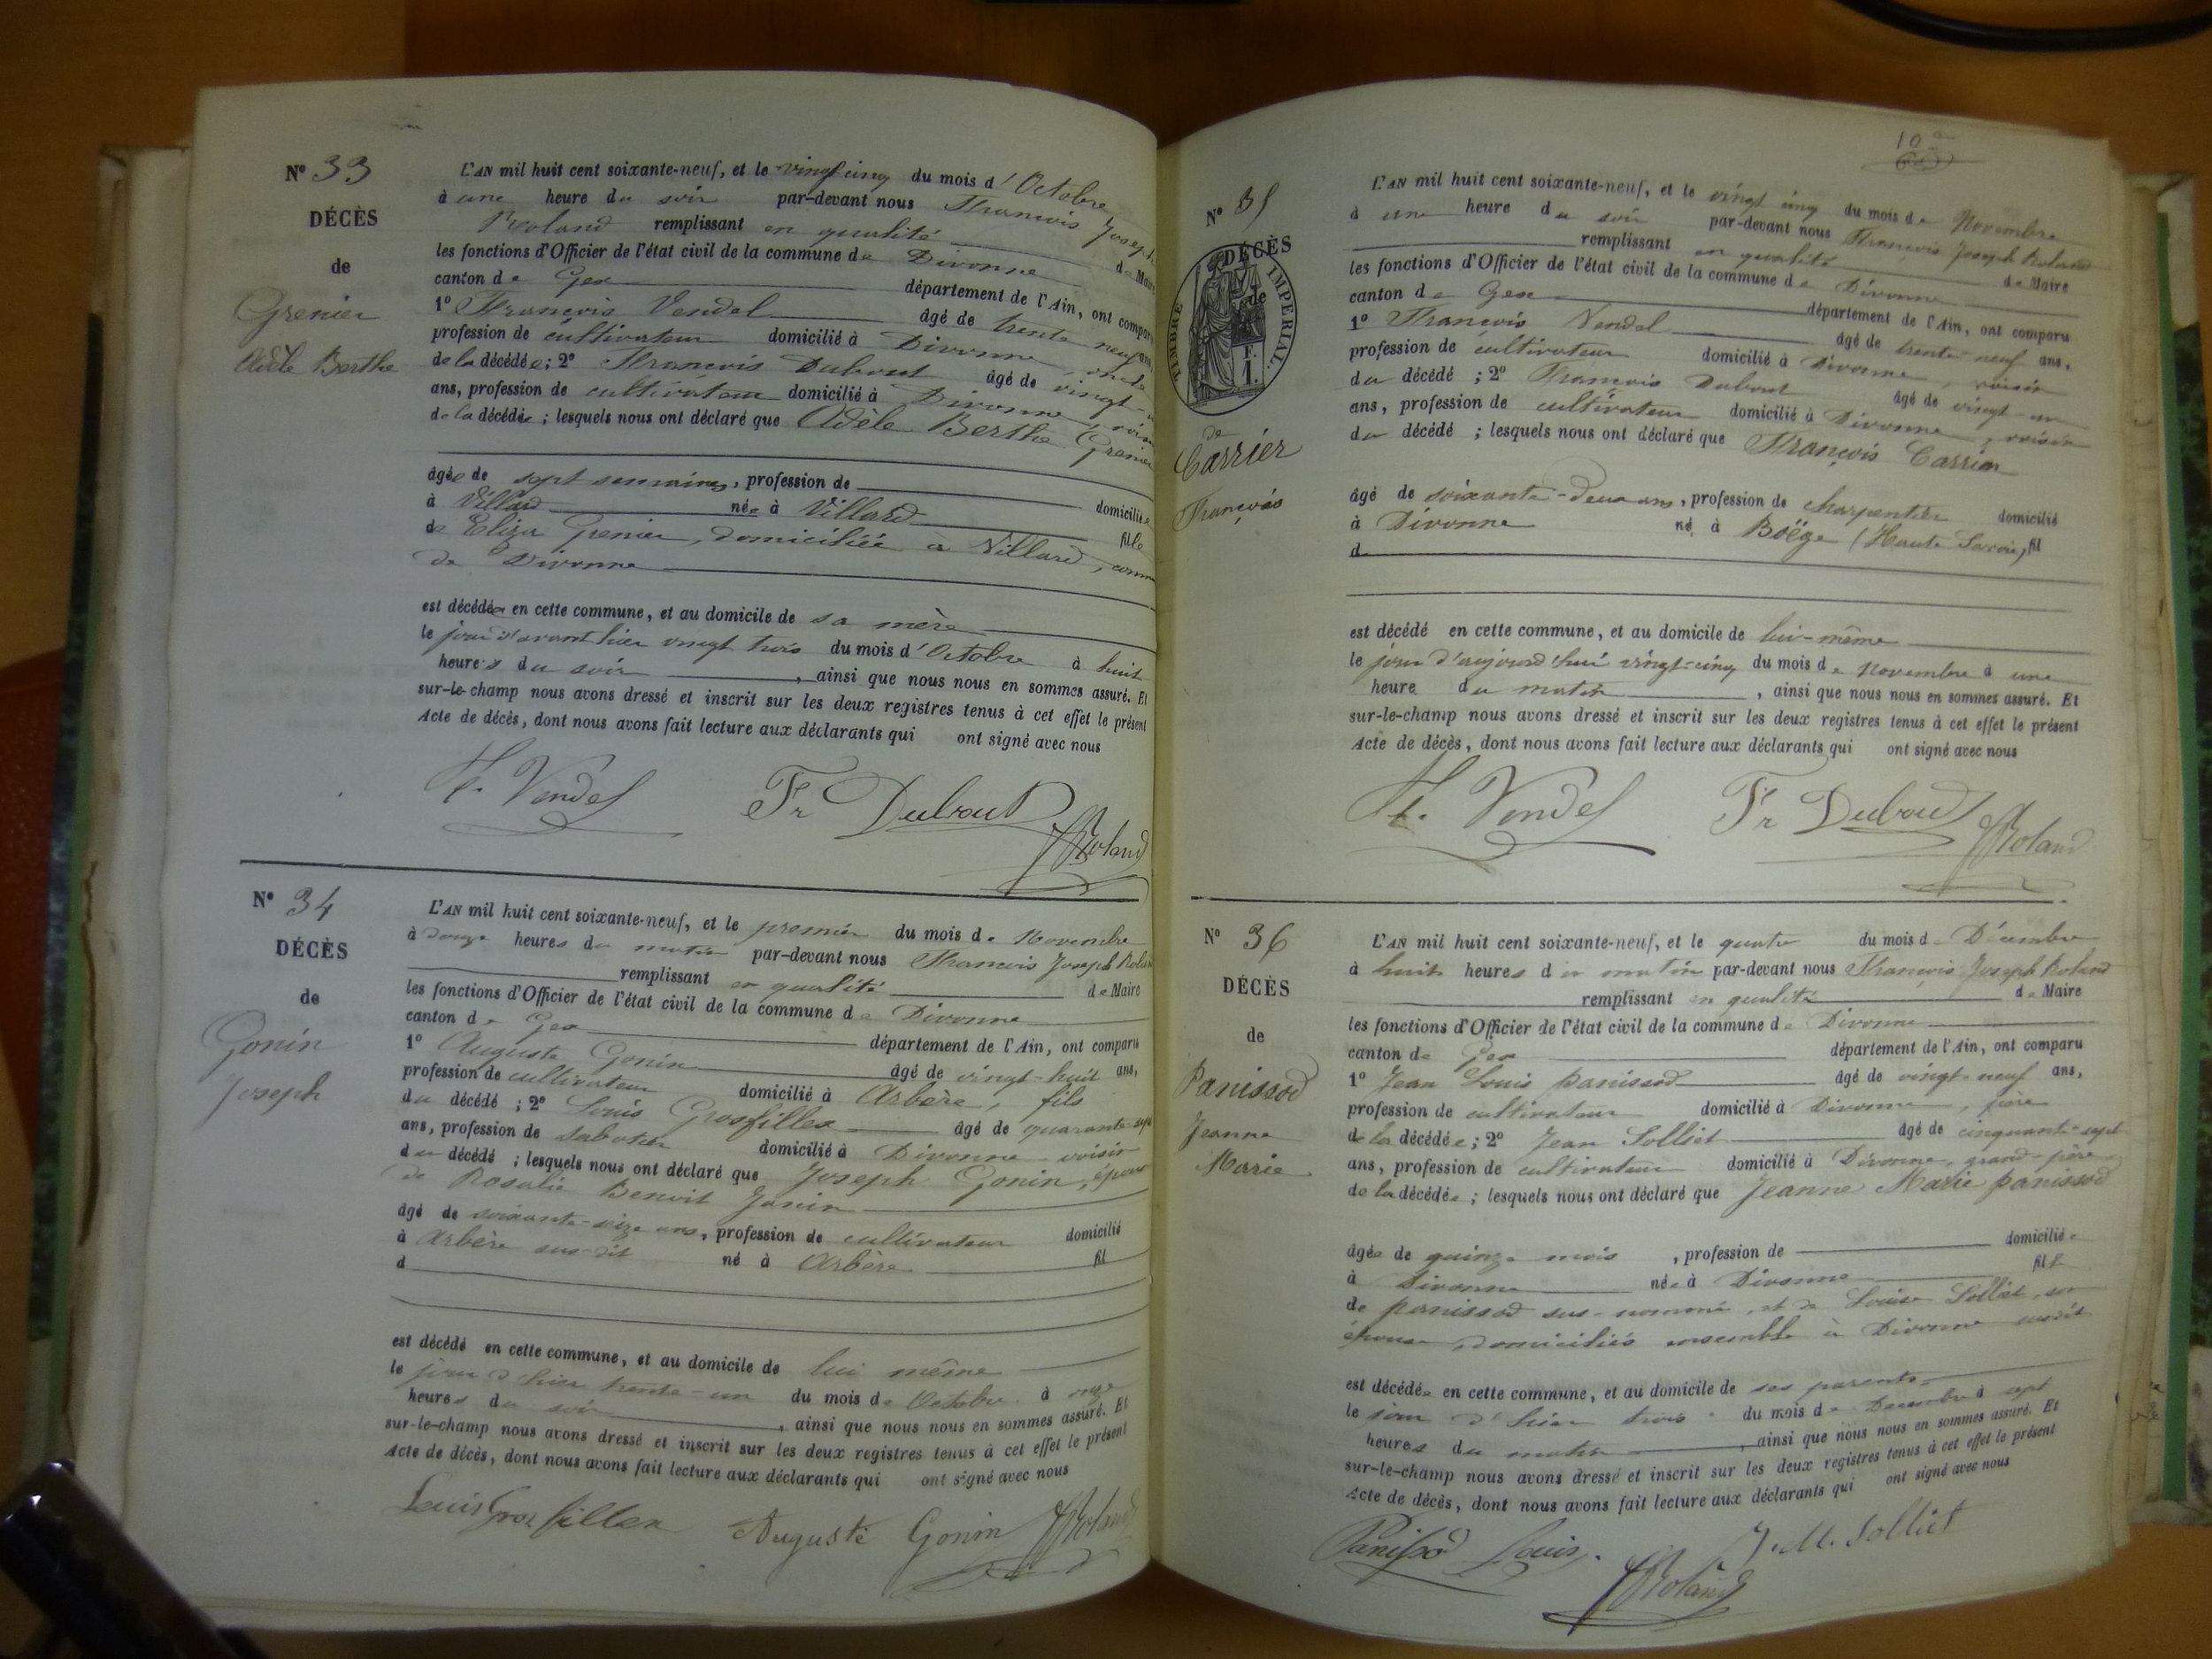 N° 33
DÉCÈS
de
Grenier
Adèle Berthe
L'AN mil huit cent soixante-neuf, et le vingt cinq du mois d'Octobre
à une heure du soir par-devant nous François Joseph
Roland remplissant en qualité de Maire
les fonctions d'Officier de l'état civil de la commune de Divonne
canton de Gex département de l'Ain, ont comparu
1° François Vendel âgé de trente neuf ans,
profession de cultivateur domicilié à Divonne, oncle
de la décédée; 2° François Dubout âgé de vingt-un
ans, profession de cultivateur domicilié à Divonne, voisin
de la décédée; lesquels nous ont déclaré que Adèle Berthe Grenier
âgée de sept semaines, profession de domiciliée
à Villard née à Villard fille
de Eliza Grenier, domiciliée à Villard, commune
de Divonne
est décédée en cette commune, et au domicile de sa mère
le jour d'avant hier vingt trois du mois d'Octobre à huit
heures du soir, ainsi que nous nous en sommes assuré. Et
sur-le-champ nous avons dressé et inscrit sur les deux registres tenus à cet effet le présent
Acte de décès, dont nous avons fait lecture aux déclarants qui ont signé avec nous
F. Vendel Fr Dubout
FJRoland
N° 34
DÉCÈS
de
Gonin
Joseph
L'AN mil huit cent soixante-neuf, et le premier du mois de Novembre
à douze heures du matin par-devant nous François Joseph Roland
remplissant en qualité de Maire
les fonctions d'Officier de l'état civil de la commune de Divonne
canton de Gex département de l'Ain, ont comparu
1° Auguste Gonin âgé de vingt-huit ans,
profession de cultivateur domicilié à Arbère, fils
du décédé; 2° Louis Grosfillex âgé de quarante-sept
ans, profession de sabotier domicilié à Divonne voisin
du décédé; lesquels nous ont déclaré que Joseph Gonin, époux
de Rosalie Benoit Janin
âgé de soixante-seize ans, profession de cultivateur domicilié
à Arbère sus-dit né à Arbère fil
d
est décédé en cette commune, et au domicile de lui même
le jour d'hier trente-un du mois de Octobre à onze
heures du soir, ainsi que nous nous en sommes assuré. Et
sur-le-champ nous avons dressé et inscrit sur les deux registres tenus à cet effet le présent
Acte de décès, dont nous avons fait lecture aux déclarants qui ont signé avec nous
Louis Grosfillex Auguste Gonin FJRoland
10e
N° 35
DÉCÈS
de
TIMBRE IMPERIAL
F.
1.
de
Carrier
François
L'AN mil huit cent soixante-neuf, et le vingt cinq du mois de Novembre
à une heure du soir par-devant nous François Joseph Roland
remplissant en qualité de Maire
les fonctions d'Officier de l'état civil de la commune de Divonne
canton de Gex département de l'Ain, ont comparu
1° François Vendel âgé de trente-neuf ans,
profession de cultivateur domicilié à Divonne, voisin
du décédé; 2° François Dubout âgé de vingt-un
ans, profession de cultivateur domicilié à Divonne, voisin
du décédé; lesquels nous ont déclaré que François Carrier
âgé de soixante-deux ans, profession de charpentier domicilié
à Divonne né à Boëge (Haute Savoie) fil
d
est décédé en cette commune, et au domicile de lui-même
le jour d'aujourd'hui vingt-cinq du mois de Novembre à une
heure du matin, ainsi que nous nous en sommes assuré. Et
sur-le-champ nous avons dressé et inscrit sur les deux registres tenus à cet effet le présent
Acte de décès, dont nous avons fait lecture aux déclarants qui ont signé avec nous
F. Vendel Fr Dubout
FJRoland
N° 36
DÉCÈS
de
Panissod
Jeanne
Marie
L'AN mil huit cent soixante-neuf, et le quatre du mois de Décembre
à huit heures du matin par-devant nous François Joseph Roland
remplissant en qualité de Maire
les fonctions d'Officier de l'état civil de la commune de Divonne
canton de Gex département de l'Ain, ont comparu
1° Jean Louis panissod âgé de vingt-neuf ans,
profession de cultivateur domicilié à Divonne, père
de la décédée; 2° Jean Solliet âgé de cinquante-sept
ans, profession de cultivateur domicilié à Divonne, grand-père
de la décédée; lesquels nous ont déclaré que Jeanne Marie panissod
âgée de quinze mois, profession de domiciliée
à Divonne née à Divonne fille
de panissod sus-nommé, et de Louise Solliet, son
épouse, domiciliés ensemble à Divonne susdit
est décédée en cette commune, et au domicile de ses parents
le jour d'hier trois du mois de Decembre à sept
heures du matin, ainsi que nous nous en sommes assuré. Et
sur-le-champ nous avons dressé et inscrit sur les deux registres tenus à cet effet le présent
Acte de décès, dont nous avons fait lecture aux déclarants qui ont signé avec nous
Panissod Louis. J. M. Solliet
FJRoland